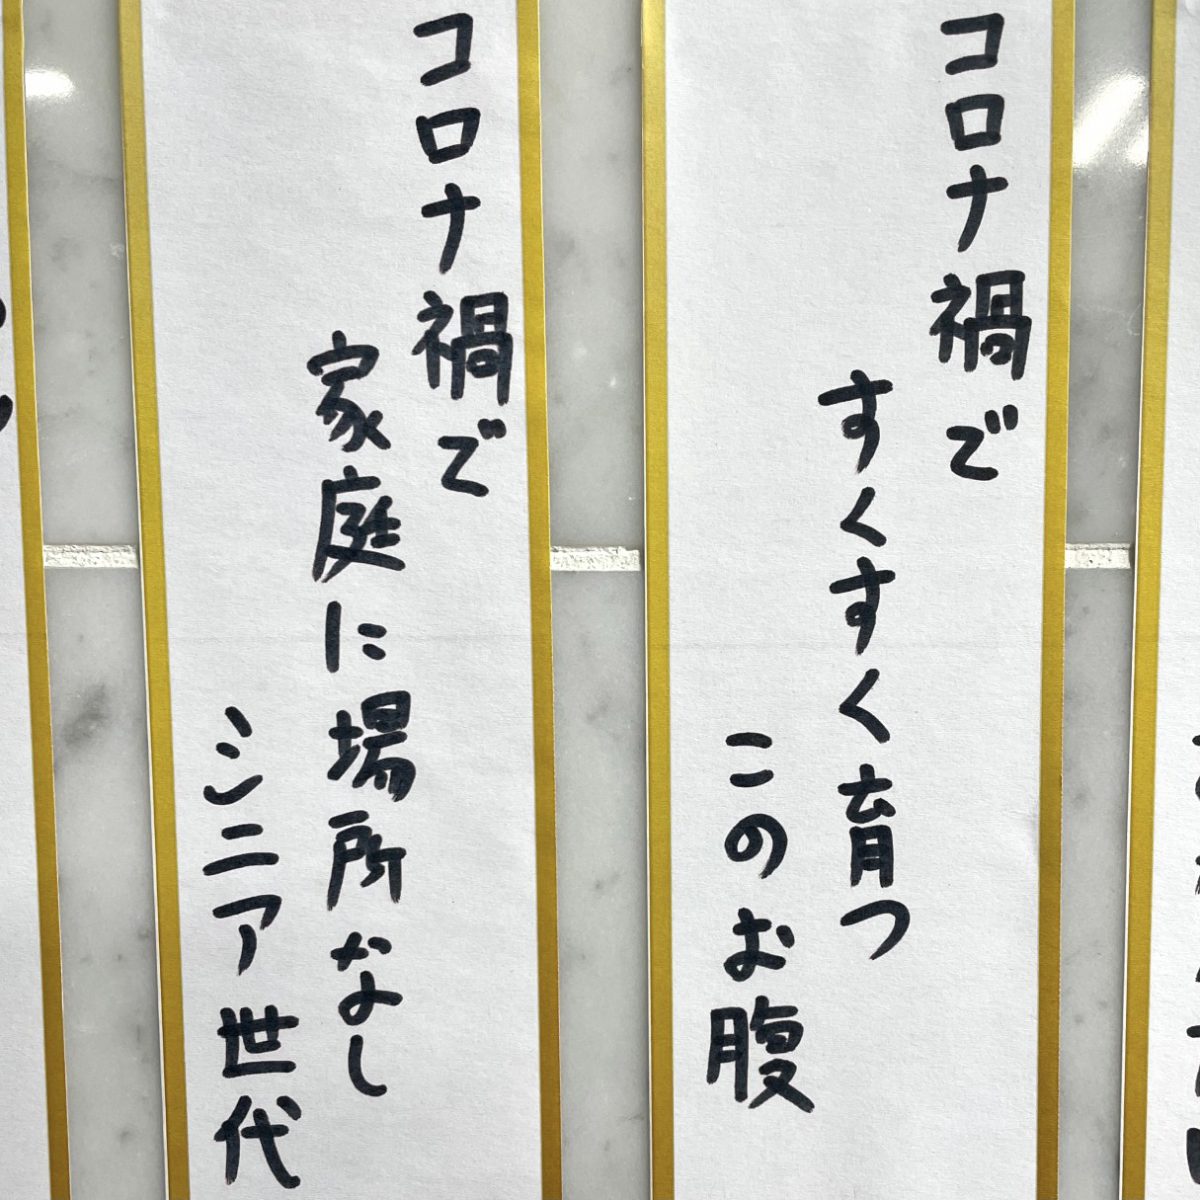 コロナ禍で
すくすく育つ
このお腹
コロナ禍で
家庭に場所なし
シニア世代